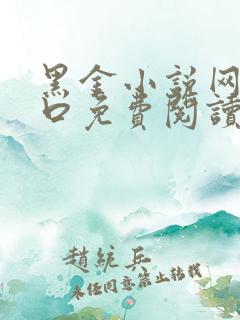 黑金小说网
口免費閱讀
趙統兵
未经同意禁止转载